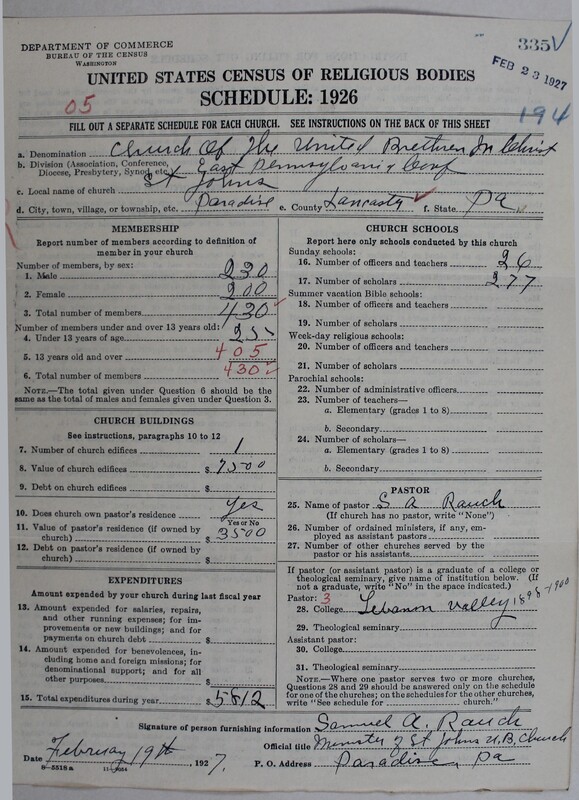 335
DEPARTMENT OF COMMERCE
BUREAU OF THE CENSUS
WASHINGTON
FEB 23 1927
UNITED STATES CENSUS OF RELIGIOUS BODIES
SCHEDULE: 1926
05
194
FILL OUT A SEPARATE SCHEDULE FOR EACH CHURCH. SEE INSTRUCTIONS ON THE BACK OF THIS SHEET
a. Denomination Church Of The United Brethren In Christ
b. Division (Association, Conference, Diocese, Presbytery, Synod, etc. East Pennsylvania Conf
c. Local name of church St Johns
d. City, town, village, or township, etc. Paradise e. County Lancasty f. State Pa
MEMBERSHIP
Report number of members according to definition of
member in your church
Number of members, by sex:
1. Male 230
2. Female 200
3. Total number of members 430
Number of members under and over 13 years old:
4. Under 13 years of age 25
5. 13 years old and over 405
6. Total number of members 430
NOTE.—The total given under Question 6 should be
same as the total of males and females given under Question 3.
CHURCH BUILDINGS
See instructions, paragraphs 10 to 12
7. Number of church edifices 1
8. Value of church edifices $ 7500
9. Debt on church edifices $
10. Does church own pastor's residence Yes
Yes or No
11. Value of pastor's residence (if owned by
church) $ 3500
12. Debt on pastor's residence (if owned by
church) $
EXPENDITURES
Amount expended by your church during last fiscal year
13. Amount expended for salaries, repairs,
and other running expenses; for im-
provements or new buildings; and for
payments on church debt $
14. Amount expended for benevolences, in-
cluding home and foreign missions; for
denominational support; and for all
other purposes $
15. Total expenditures during year $ 5812
CHURCH SCHOOLS
Report here only schools conducted by this church
Sunday schools:
16. Number of officers and teachers 26
17. Number of scholars 277
Summer vacation Bible schools:
18. Number of officers and teachers
19. Number of scholars
Week-day religious schools:
20. Number of officers and teachers
21. Number of scholars
Parochial schools:
22. Number of administrative officers
23. Number of teachers—
a. Elementary (grades 1 to 8)
b. Secondary
24. Number of scholars—
a. Elementary (grades 1 to 8)
b. Secondary
PASTOR
25. Name of pastor S A Rauch
(If church has no pastor, write "None")
26. Number of ordained ministers, if any, em-
ployed as assistant pastors
27. Number of other churches served by the
pastor or his assistants
If pastor (or assistant pastor) is a graduate of a college or
theological seminary, give name of institution below. (If
not a graduate, write "No" in the space indicated.)
Pastor: 3
28. College Lebanon Valley 1898-1900
29. Theological seminary
Assistant pastor:
30. College
31. Theological seminary
NOTE.—Where one pastor serves two or more churches,
Questions 28 and 29 should be answered only on the schedule
for one of the churches; on the schedules for the other churches,
write "See schedule for church."
Signature of person furnishing information Samuel A. Rauch
Official title Minister of St Johns U.B. Church
Date February 19th, 1927. P. O. Address Paradise, Pa